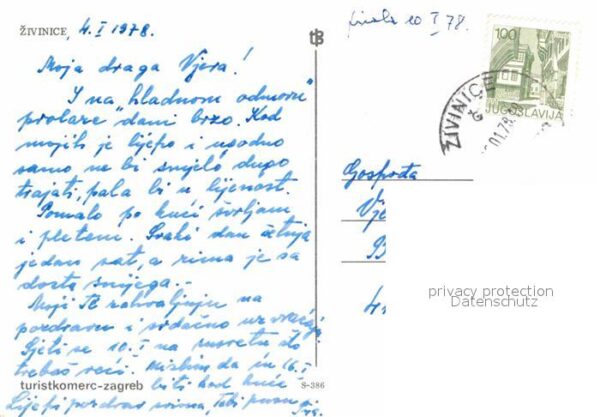 ŽIVINICE, 4. I 1978.
Moja draga Vjera!
I na "hladnom odmoru"
prolaze dani brzo. Kod
mojih je lijepo i ugodno
samo ne bi smjelo dugo
trajati, pala bi u lijenost.
Pomalo po kući švrljam
i pletem. Svaki dan šetnja
jedan sat, a zima je sa
dosta snijega.
Moji Te zahvaljuju na
pozdravu i srdačno uzvraćaju
Sjeti se 10. I na susretu što
trebaš reći. Mislim da ću 16. I
biti kod kuće
Lijepi pozdrav svima, Tebi
turistkomerc-zagreb
S-386
tB
10 I 78.
100
JUGOSLAVIJA
ŽIVINICE
.01.78
Gospođa
Vje
B
4
privacy protection
Datenschutz